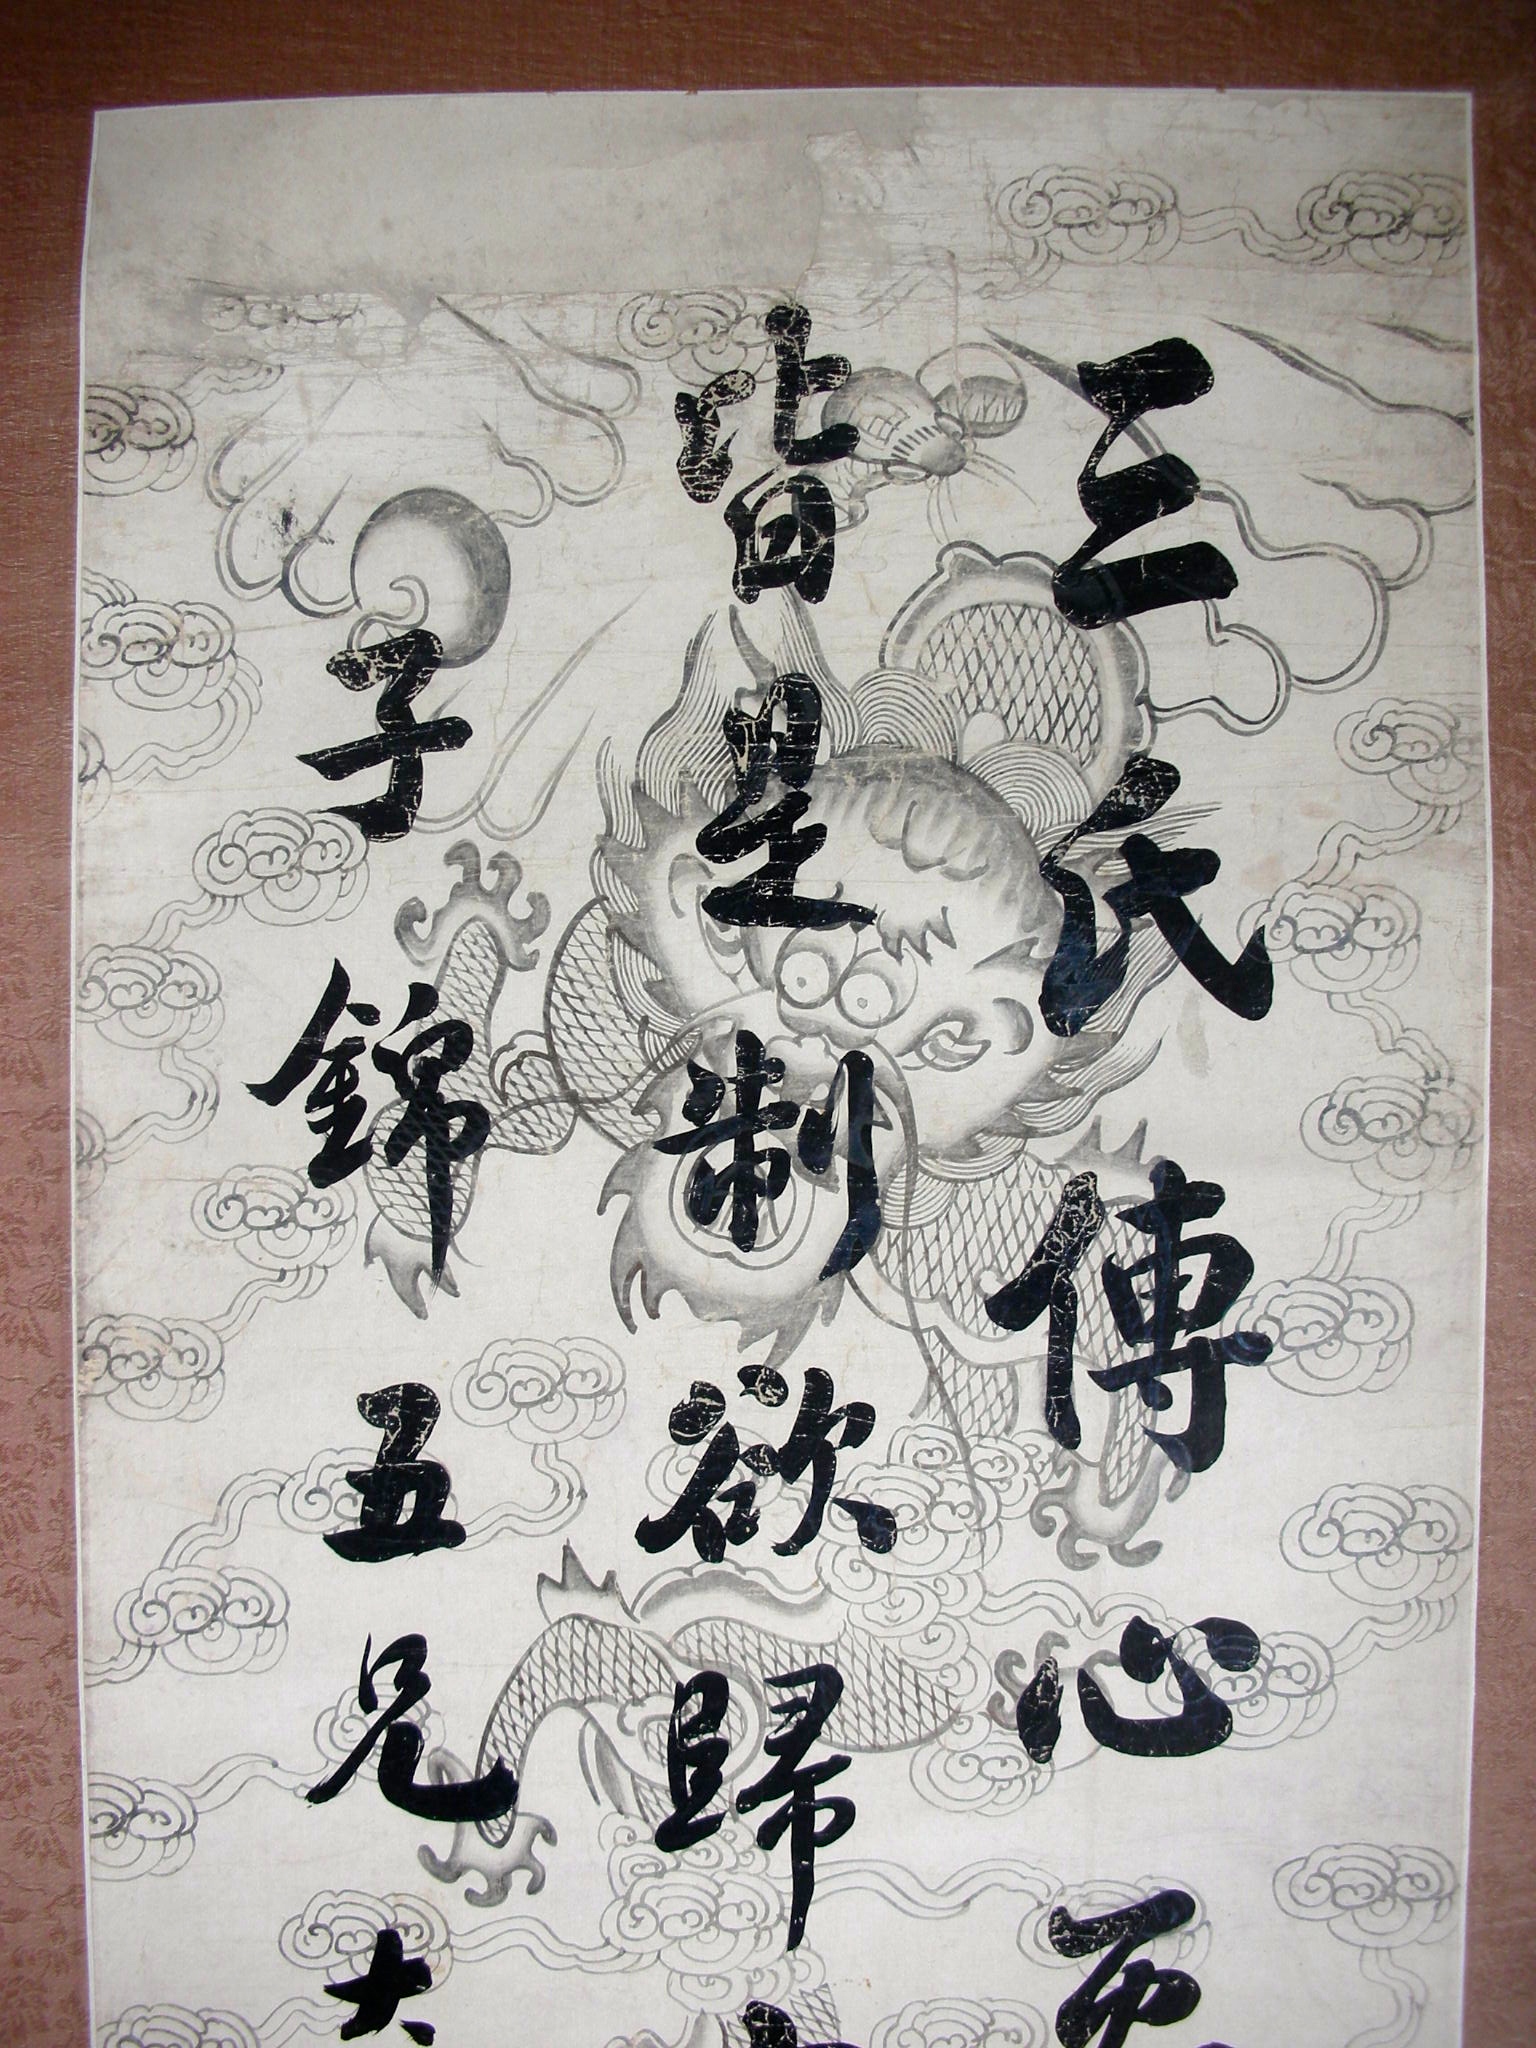 三氏傳心
皆是制欲歸
子錦五兄大